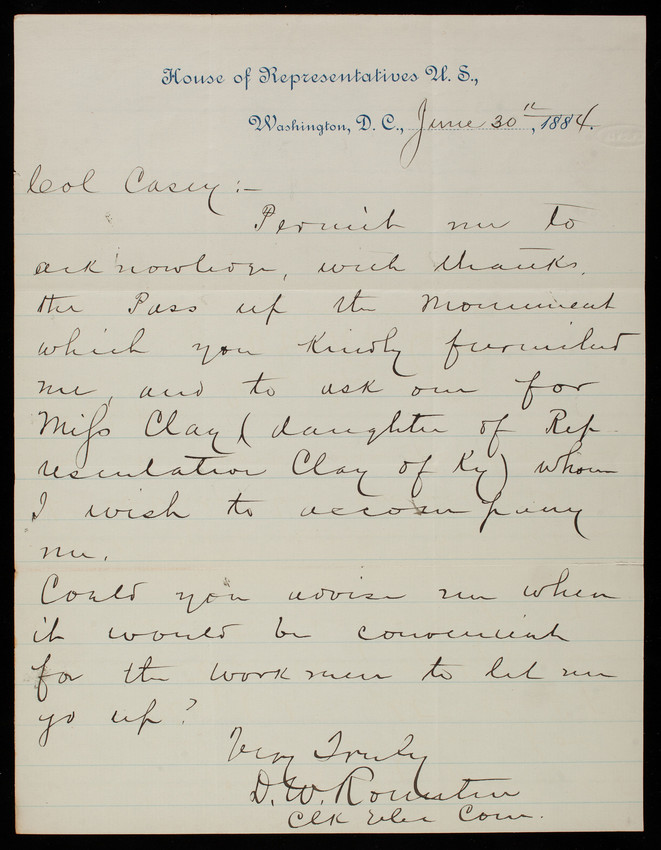 House of Representatives U. S.,
Washington, D. C., June 30th, 1884.
Col Casey:-
Permit me to
acknowledge, with thanks,
the Pass up the Monument
which you kindly furnished
me, and to ask one for
Miss Clay (daughter of Rep-
resentative Clay of Ky) whom
I wish to accompany
me.
Could you advise me when
it would be convenient
for the workmen to let me
go up?
Very Truly
D. W.
Clk Elec Com.